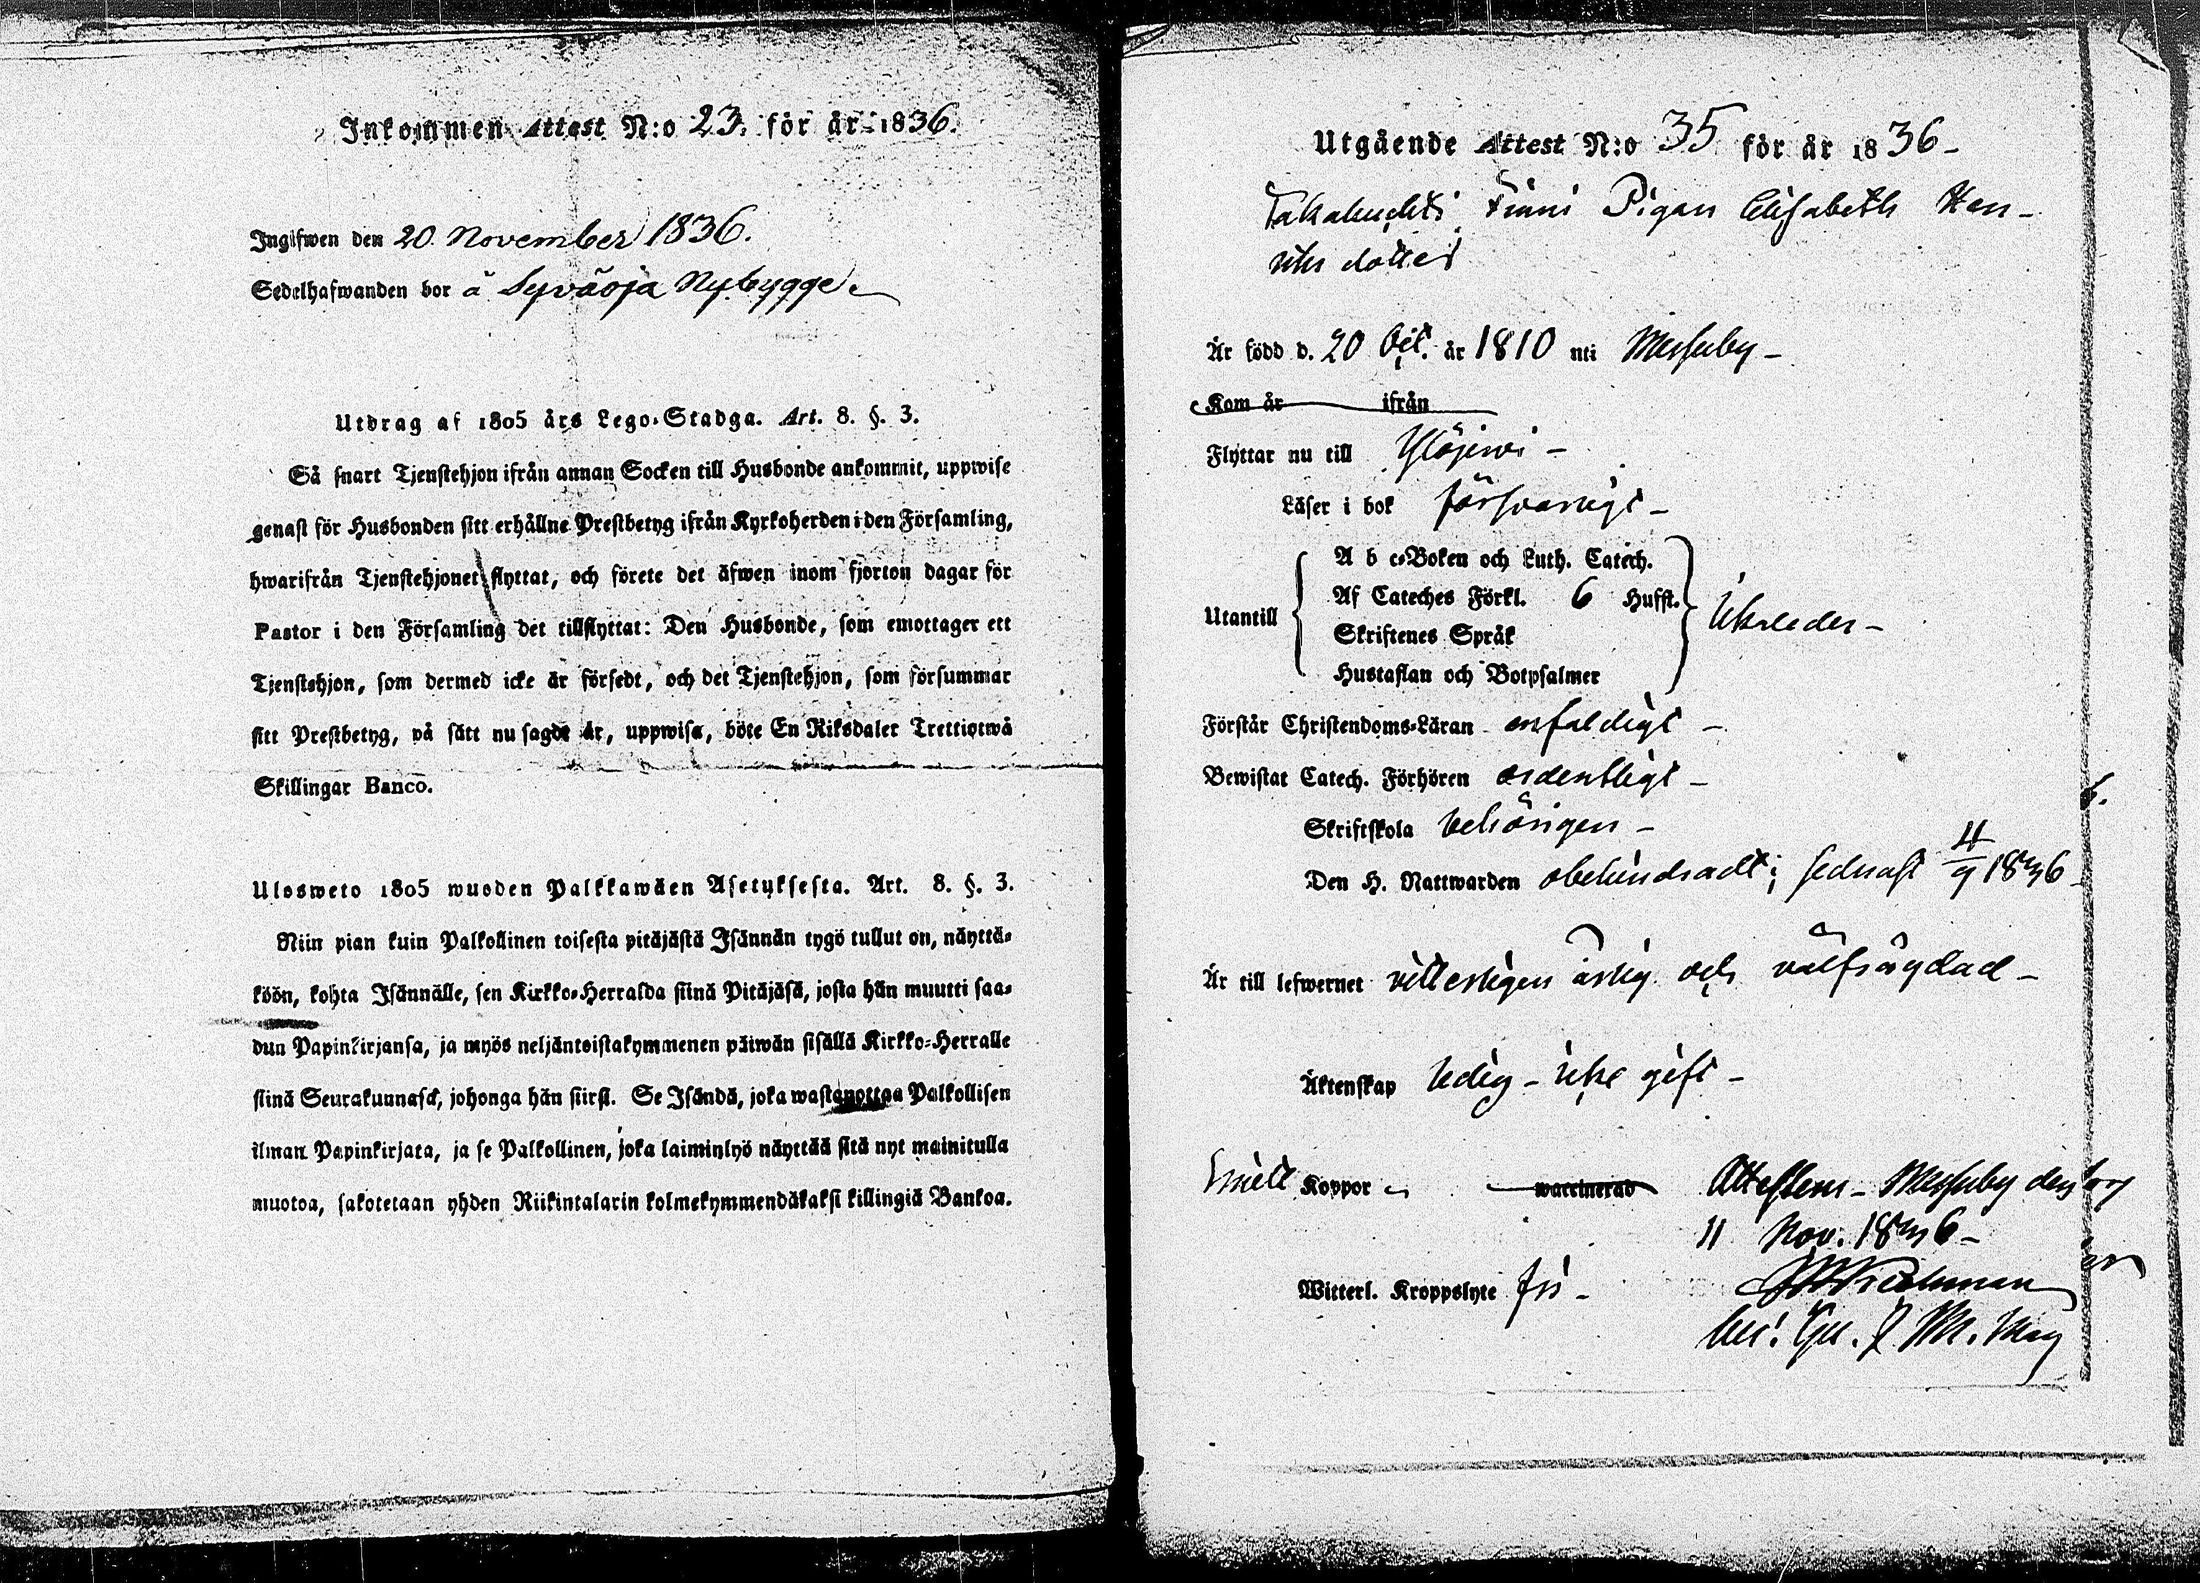 Inkommen Attest N:o 23. för år 1836.
Ingifwen den 20. November 1836.
Sedelhafwanden bor å Syväoja Nybygge
Utdrag af 1805 års Lego-Stadga. Art. 8. §. 3.
Så snart Tjenstehjon ifrån annan Socken till Husbonde ankommit, uppwise
genast för Husbonden sitt erhållne Prestbetyg ifrån Kyrkoherden i den Församling,
hwarifrån Tjenstehjonet flyttat, och förete det äfwen inom fjorton dagar för
Pastor i den Församling det tillflyttat: Den Husbonde, som emottager ett
Tjenstehjon, som dermed icke är försedt, och det Tjenstehjon, som försummar
sitt Prestbetyg, på sätt nu sagdt är, uppwisa, böte En Riksdaler Trettiotwå
Skillingar Banco.
Ulosweto 1805 wuoden Palkkawäen Asetyksesta. Art. 8. §. 3.
Niin pian kuin Palkollinen toisesta pitäjästä Isännän tygö tullut on, näyttä-
köön, kohta Isännälle, sen Kirkko-Herralda siinä Pitäjäsä, josta hän muutti saa-
dun Papinkirjansa, ja myös neljäntoistakymmenen päiwän sisällä Kirkko-Herralle
siinä Seurakunnasa, johonga hän siirsi. Se Isändä, joka wastanottaa Palkollisen
ilman Papinkirjata, ja se Palkollinen, joka laiminlyö näyttää sitä nyt mainitulla
muotoa, sakotetaan yhden Riikintalarin kolmekymmendäkaksi killingiä Bankoa.
Utgående Attest N:o 35 för år 1836 -
Takahuchti Pigan Elisabeth Hen-
riks dotter
Är född d. 20 Oct. år 1810 uti Messuby -
Kom år ifrån
Flyttar nu till Ylöjerwi -
Läser i bok försvarligt -
Utantill
A b c-Boken och Luth. Catech.
Af Cateches Förkl. 6 Hufst.
Skriftenes Språk
Hustaflan och Botpsalmer
Förstår Christendoms-Läran enfaldigt -
Bewistat Catech. Förhören ordentligt -
Skriftskola behörigen -
Den H. Nattwarden obehindradt; sednast 4/9 1836 -
Är till lefwernet vitterligen ärlig och välfrägdad -
Äktenskap ledig - icke gift -
Koppor waccinerad
Attesterar - Messuby den
11 Nov. 1836 -
Witterl. Kroppslyte fri -